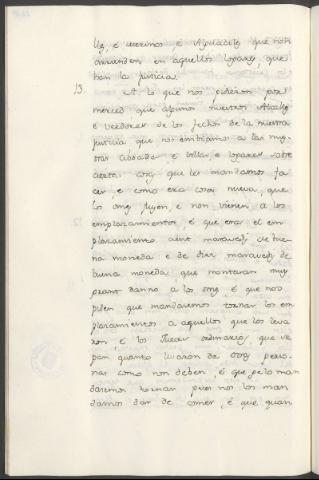 llez, é merinos é Alguaciles que non
anden en aquellos logares, que
han la justicia.
13 A lo que nos pidieron por
merced que algunos nuestros Alcalles
é veedores de los fechos de la nuestra
justicia que nos embiamos a las nues-
tras cibdades é villas é logares sobre
ciertas cosas que les mandamos fa-
cer, é como era cosa nueva, que
los omes fuyen, é non vienen a los
emplazamientos, é que era el em-
plazamiento cient maravedis de bue-
na moneda é de diez maravedis de
buena moneda que montaran muy
grant danno a los omes é que nos
piden que mandaremos tornar los em
plazamientos a aquellos que los leva
ron é los Jueces ordinarios que se
pan quanto levaron de cosas perso-
nas como non deben, é que ge lo man
daremos tornar pues nos los man
damos dar de comer, é que quan